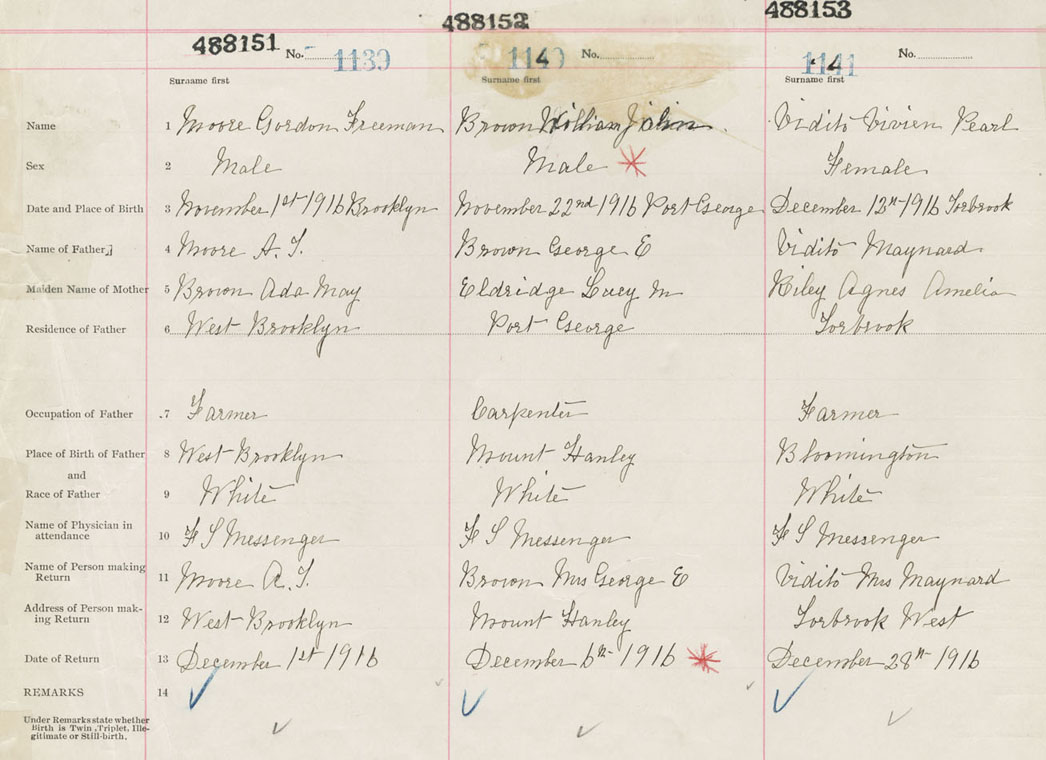 488151 488152 488153
No. 1139 1140 No. 1141 No.
Surname first Surname first Surname first
Name 1 Moore Gordon Freeman Brown William John Vidito Vivien Pearl
Sex 2 Male Male Female
Date and Place of Birth 3 November 1st 1916 Brooklyn November 22nd 1916 Port George December 12th 1916 Torbrook
Name of Father 4 Moore A. T. Brown George E Vidito Maynard
Maiden Name of Mother 5 Brown Ada May Eldridge Lucy M Riley Agnes Amelia
Residence of Father 6 West Brooklyn Port George Torbrook
Occupation of Father 7 Farmer Carpenter Farmer
Place of Birth of Father 8 West Brooklyn Mount Hanley Bloomington
and
Race of Father 9 White White White
Name of Physician in
attendance 10 F S Messenger F S Messenger F S Messenger
Name of Person making
Return 11 Moore A. T. Brown Mrs George E Vidito Mrs Maynard
Address of Person mak-
ing Return 12 West Brooklyn Mount Hanley Torbrook West
Date of Return 13 December 1st 1916 December 6th 1916 December 28th 1916
REMARKS 14
Under Remarks state whether
Birth is Twin, Triplet, Ille-
gitimate or Still-birth.